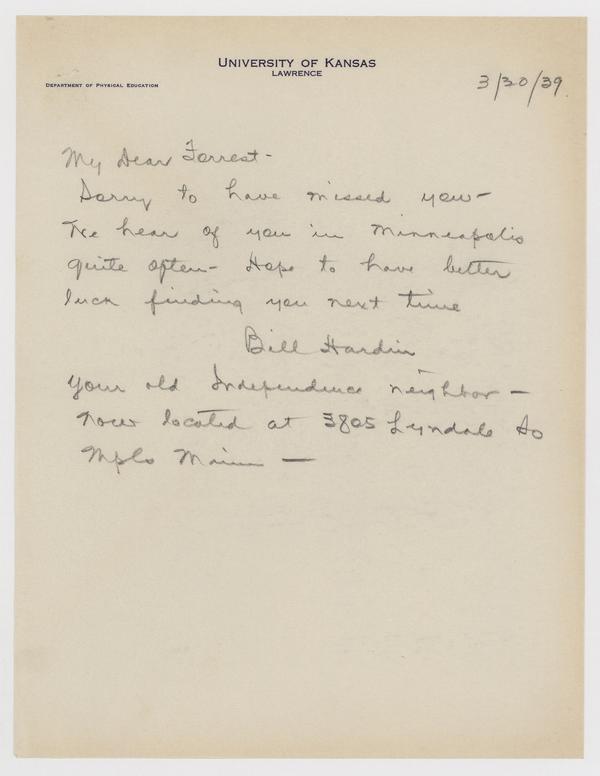 UNIVERSITY OF KANSAS
LAWRENCE
DEPARTMENT OF PHYSICAL EDUCATION
3/30/39
My Dear Forrest -
Sorry to have missed you -
We hear of you in Minneapolis
quite often - Hope to have better
luck finding you next time
Bill Hardin
Your old Independence neighbor -
now located at 3805 Lyndale So
Mpls Minn —